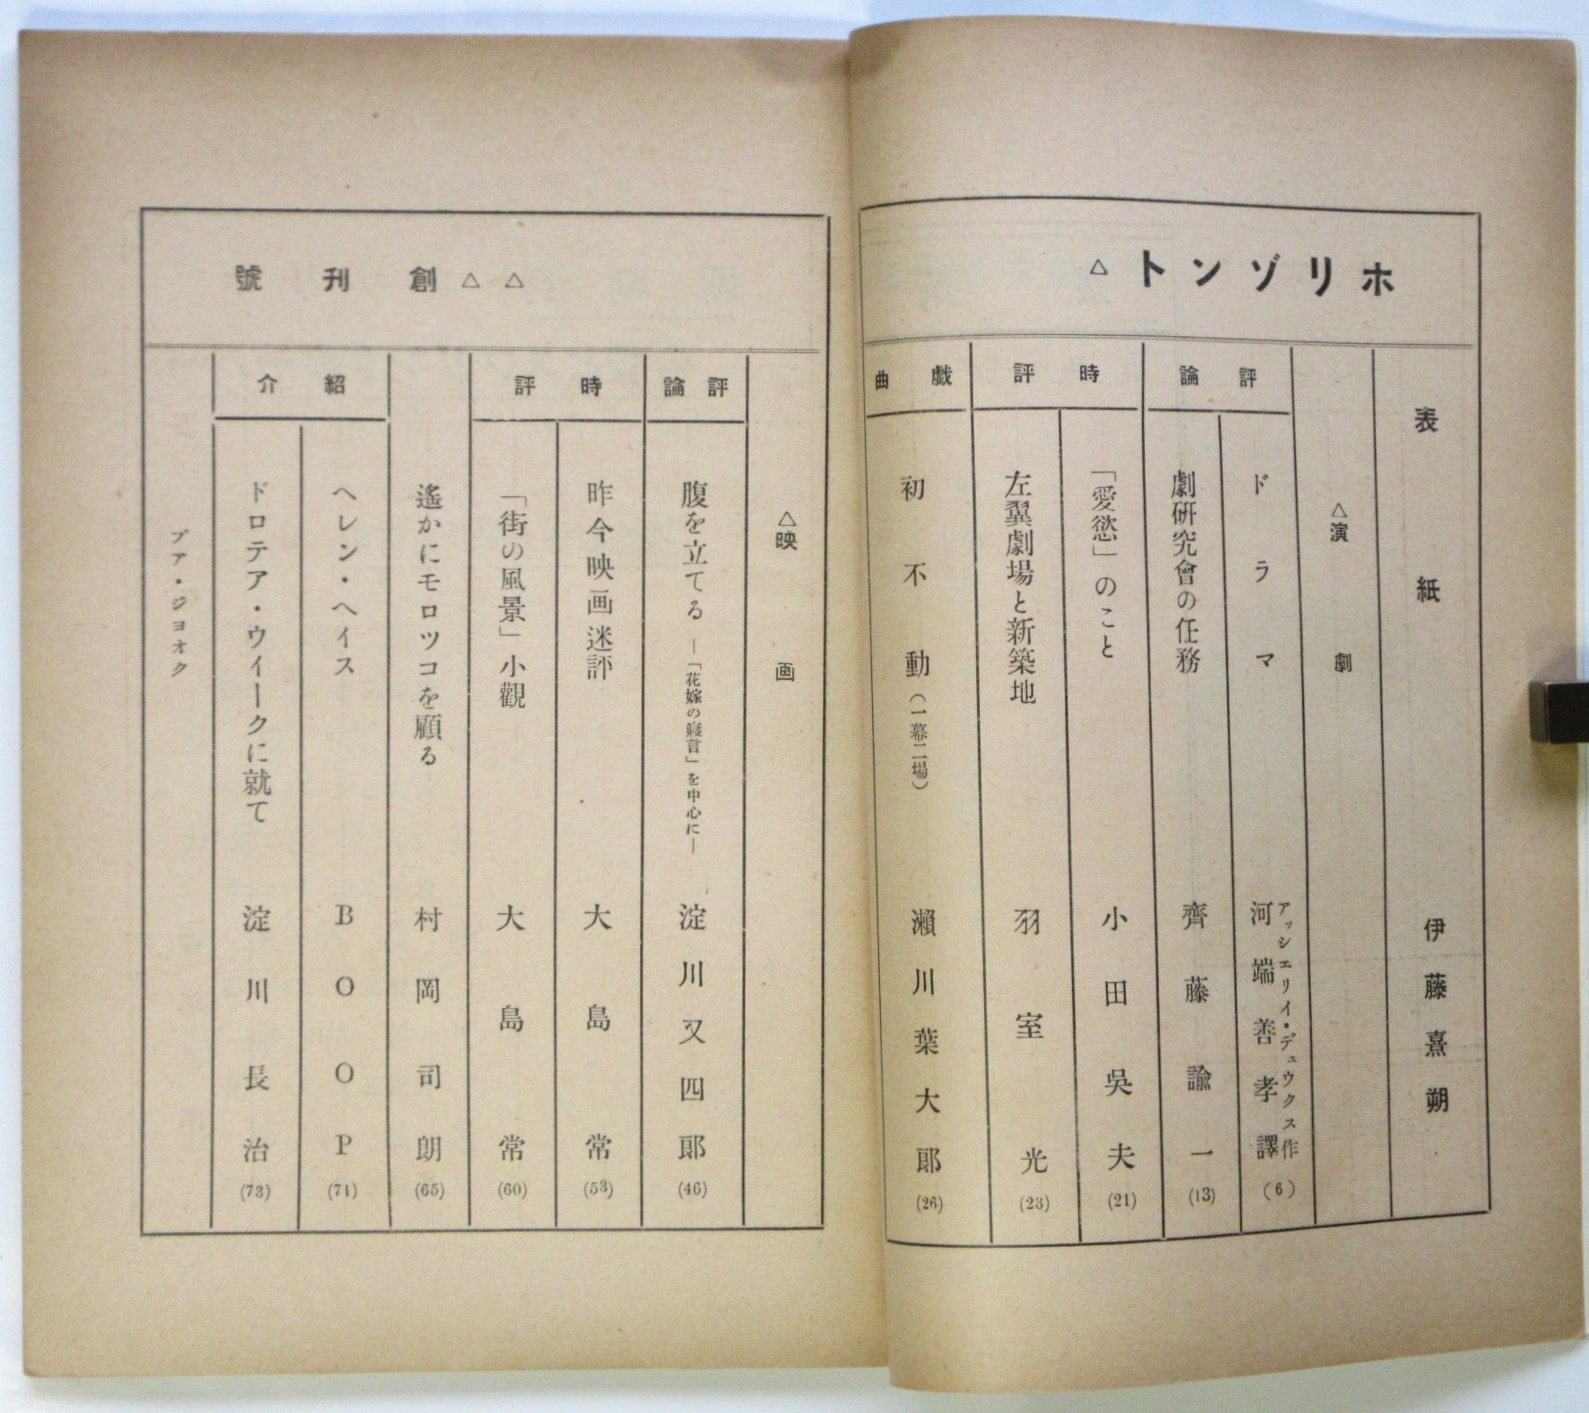 ホリゾント△
表紙 伊藤熹朔
△演劇
評論
ドラマ アッシエリイ・デュウクス作 河端善孝譯 (6)
劇研究會の任務 齊藤諭一 (13)
時評
「愛慾」のこと 小田吳夫 (21)
左翼劇場と新築地 羽室光 (23)
戯曲
初不動(一幕二場) 瀨川葉大郎 (26)
△△創刊號
△映画
評論
腹を立てる ―「花嫁の寢言」を中心に― 淀川又四郎 (46)
時評
昨今映画迷評 大島常 (53)
「街の風景」小觀 大島常 (60)
遙かにモロツコを顧る 村岡司朗 (65)
紹介
ヘレン・ヘイス BOOP (71)
ドロテア・ウィークに就て 淀川長治 (73)
プア・ジヨオク